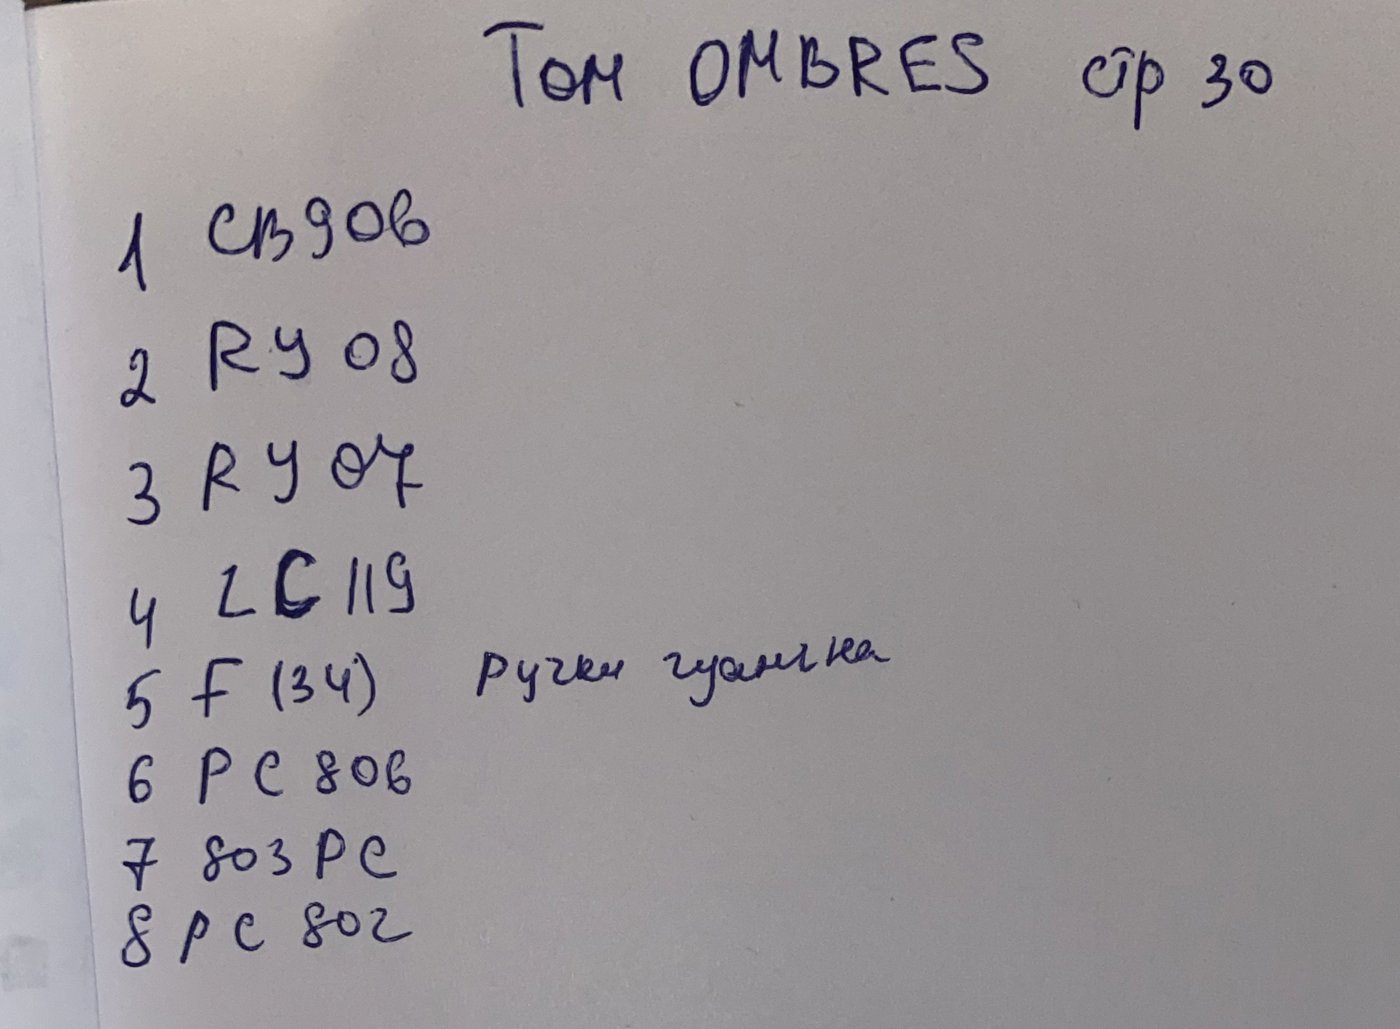 Том OMBRES стр 30
1 CB906
2 RY 08
3 RY 07
4 LC 119
5 F (34) ручки
6 PC 806
7 803 PC
8 PC 802